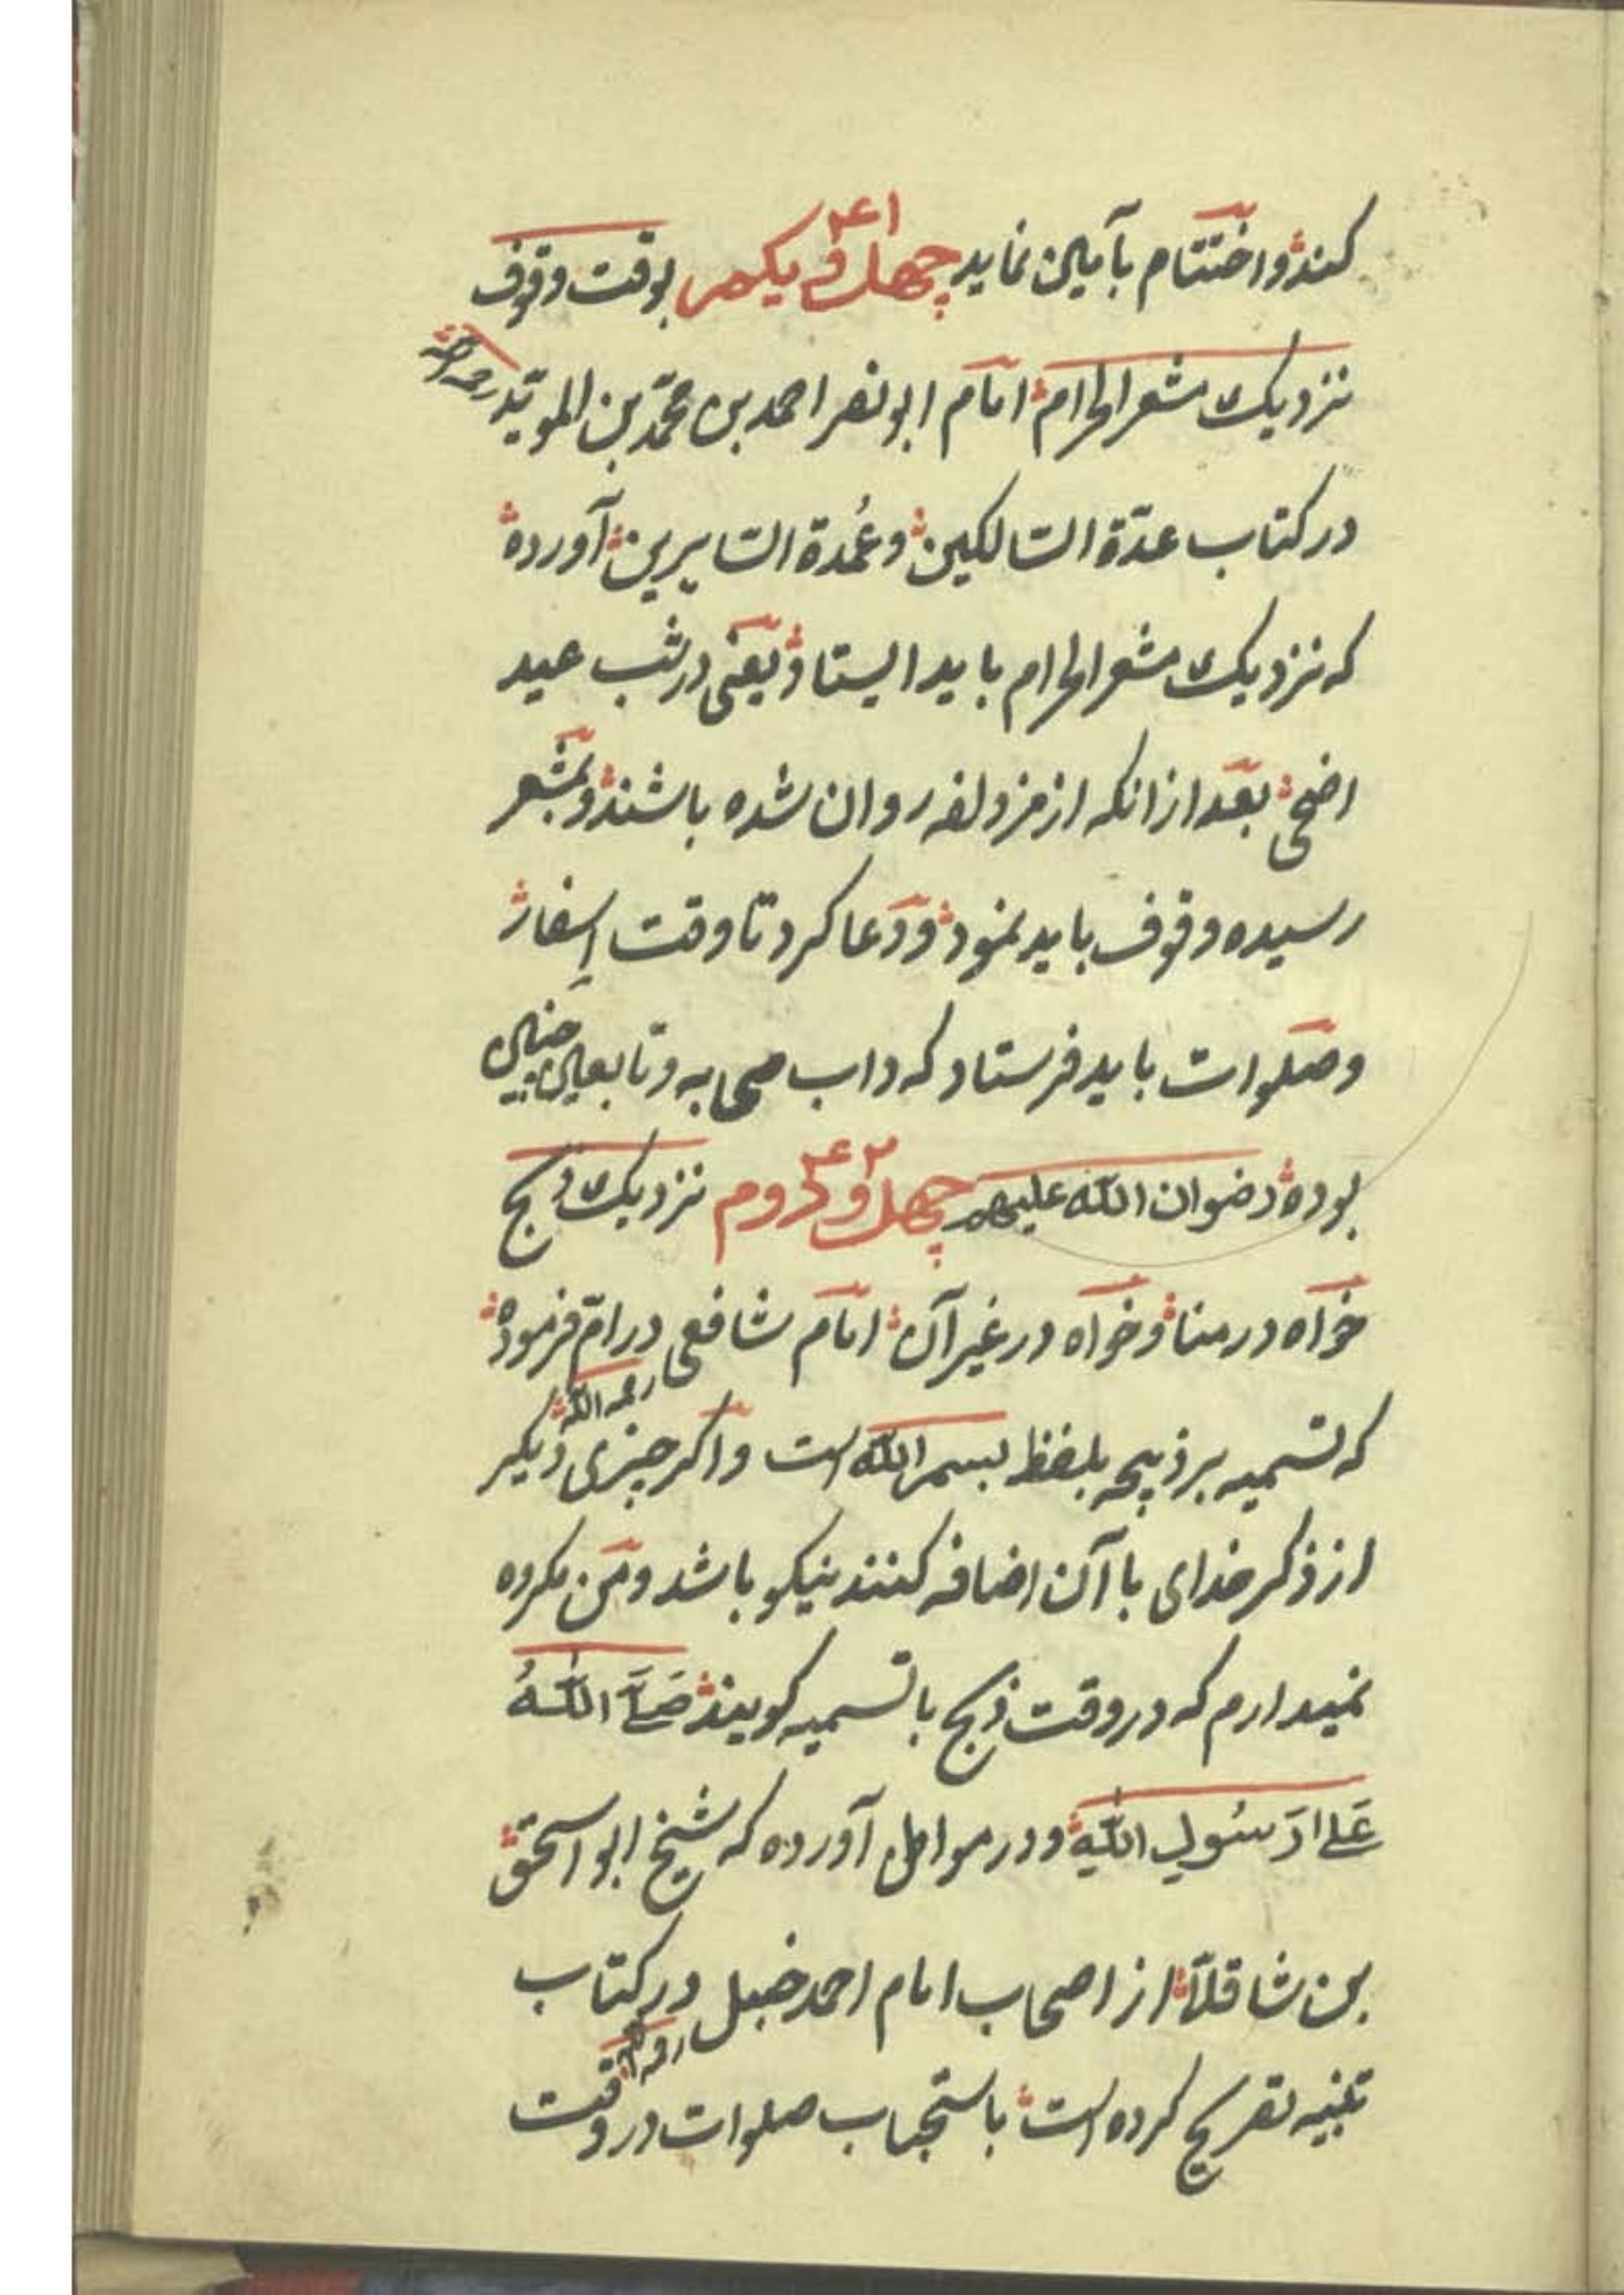 کنند و اختتام بآمین نماید چهل و یکم ۴۱ بوقت وقوف
نزدیک مشعر الحرام امام ابو نصر احمد بن محمّد بن المویّد رحمه الله
در کتاب عدّة السّالکین و عُمدة السّایرین آورده
که نزدیک مشعر الحرام باید ایستاد یعنی در شب عید
اضحی بعد ازانکه از مزدلفه روان شده باشند و بمشعر
رسیده وقوف باید نمود و دعا کرد تا وقت اِسفار
و صلوات باید فرستاد که داب صحابه و تابعین چنین
بوده رضوان اللّه علیهم چهل و دوم ۴۲ نزدیک ذبح
خواه در منا و خواه در غیر آن امام شافعی رحمه اللّه در امّ فرموده
که تسمیه بر ذبیحه بلفظ بسم اللّه است و اکر چیزی دیکر
از ذکر خدای با آن اضافه کنند نیکو باشد و من مکروه
نمیدارم که در وقت ذبح با تسمیه کویند صَلَّی اللّٰهُ
عَلیٰ رَسُولِ اللّٰهِ و در مواهل آورده که شیخ ابو اسحق
بن شاقلّا از اصحاب امام احمد حنبل رحمه الله در کتاب
تنبیه تصریح کرده است باستحباب صلوات در وقت